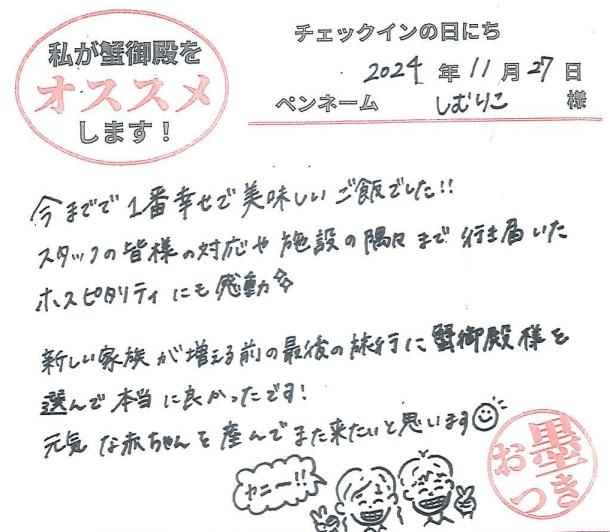 私が蟹御殿を
オススメ
します！
チェックインの日にち
2024 年 11 月 27 日
ペンネーム しむりこ 様
今までで1番幸せで美味しいご飯でした!!
スタッフの皆様の対応や施設の隅々まで行き届いた
ホスピタリティにも感動
新しい家族が増える前の最後の旅行に蟹御殿様を
選んで本当に良かったです!
元気な赤ちゃんを産んでまた来たいと思います
カニー!!
お墨
つき